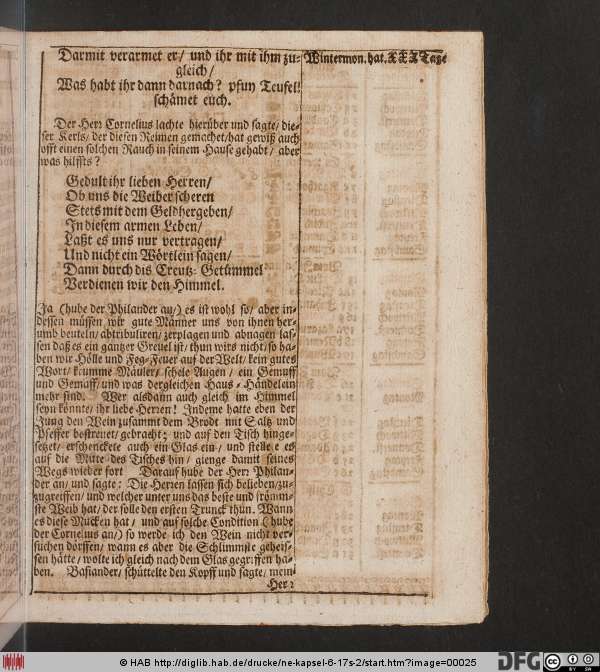 Darmit verarmet er/ und ihr mit ihm zu-
gleich/
Was habt ihr dann darnach? pfuy Teufel!
schämet euch.
Der Herr Cornelius lachte hierüber und sagte/ die-
ser Kerls/ der diesen Reimen gemachet/ hat gewiß auch
offt einen solchen Rauch in seinem Hause gehabt/ aber
was hilffts?
Gedult ihr lieben Herren/
Ob uns die Weiber scheren
Stets mit dem Geldhergeben/
In diesem armen Leben/
Laßt es uns nur vertragen/
Und nicht ein Wörtlein sagen/
Dann durch dis Creutz-Getümmel
Verdienen wir den Himmel.
Ja (hube der Philander an/) es ist wohl so/ aber in-
dessen müssen wir gute Männer uns von ihnen her-
umb beuteln/ abtribuliren/ zerplagen und abnagen las-
sen daß es ein gantzer Greuel ist/ thun wirs nicht/ so ha-
ben wir Hölle und Feg-Feuer auf der Welt/ kein gutes
Wort/ krumme Mäuler/ schele Augen/ ein Gemuff
und Gemaff/ und was dergleichen Haus-Händelein
mehr sind. Wer alsdann auch gleich im Himmel
seyn könnte/ ihr liebe Herren! Indeme hatte eben der
Jung den Wein zusammt dem Brodt mit Saltz und
Pfeffer bestreuet/ gebracht; und auf den Tisch hinge-
setzet/ erschenckete auch ein Glas ein/ und stellete es
auf die Mitte des Tisches hin/ gienge damit seines
Wegs wieder fort Darauf hube der Herr Philan-
der an/ und sagte: Die Herren lassen sich belieben/ zu-
zugreiffen/ und welcher unter uns das beste und frömm-
ste Weib hat/ der solle den ersten Trunck thun. Wann
es diese Mucken hat/ und auf solche Condition (hube
der Cornelius an/) so werde ich den Wein nicht ver-
suchen dörffen/ wann es aber die Schlimmste geheis-
sen hätte/ wolte ich gleich nach dem Glas gegriffen ha-
ben. Basiander/ schüttelte den Kopff und sagte/ mein
Herr
Wintermon. hat XXX Tage
© HAB http://diglib.hab.de/drucke/ne-kapsel-6-17s-2/start.htm?image=00025
DFG
CC BY SA